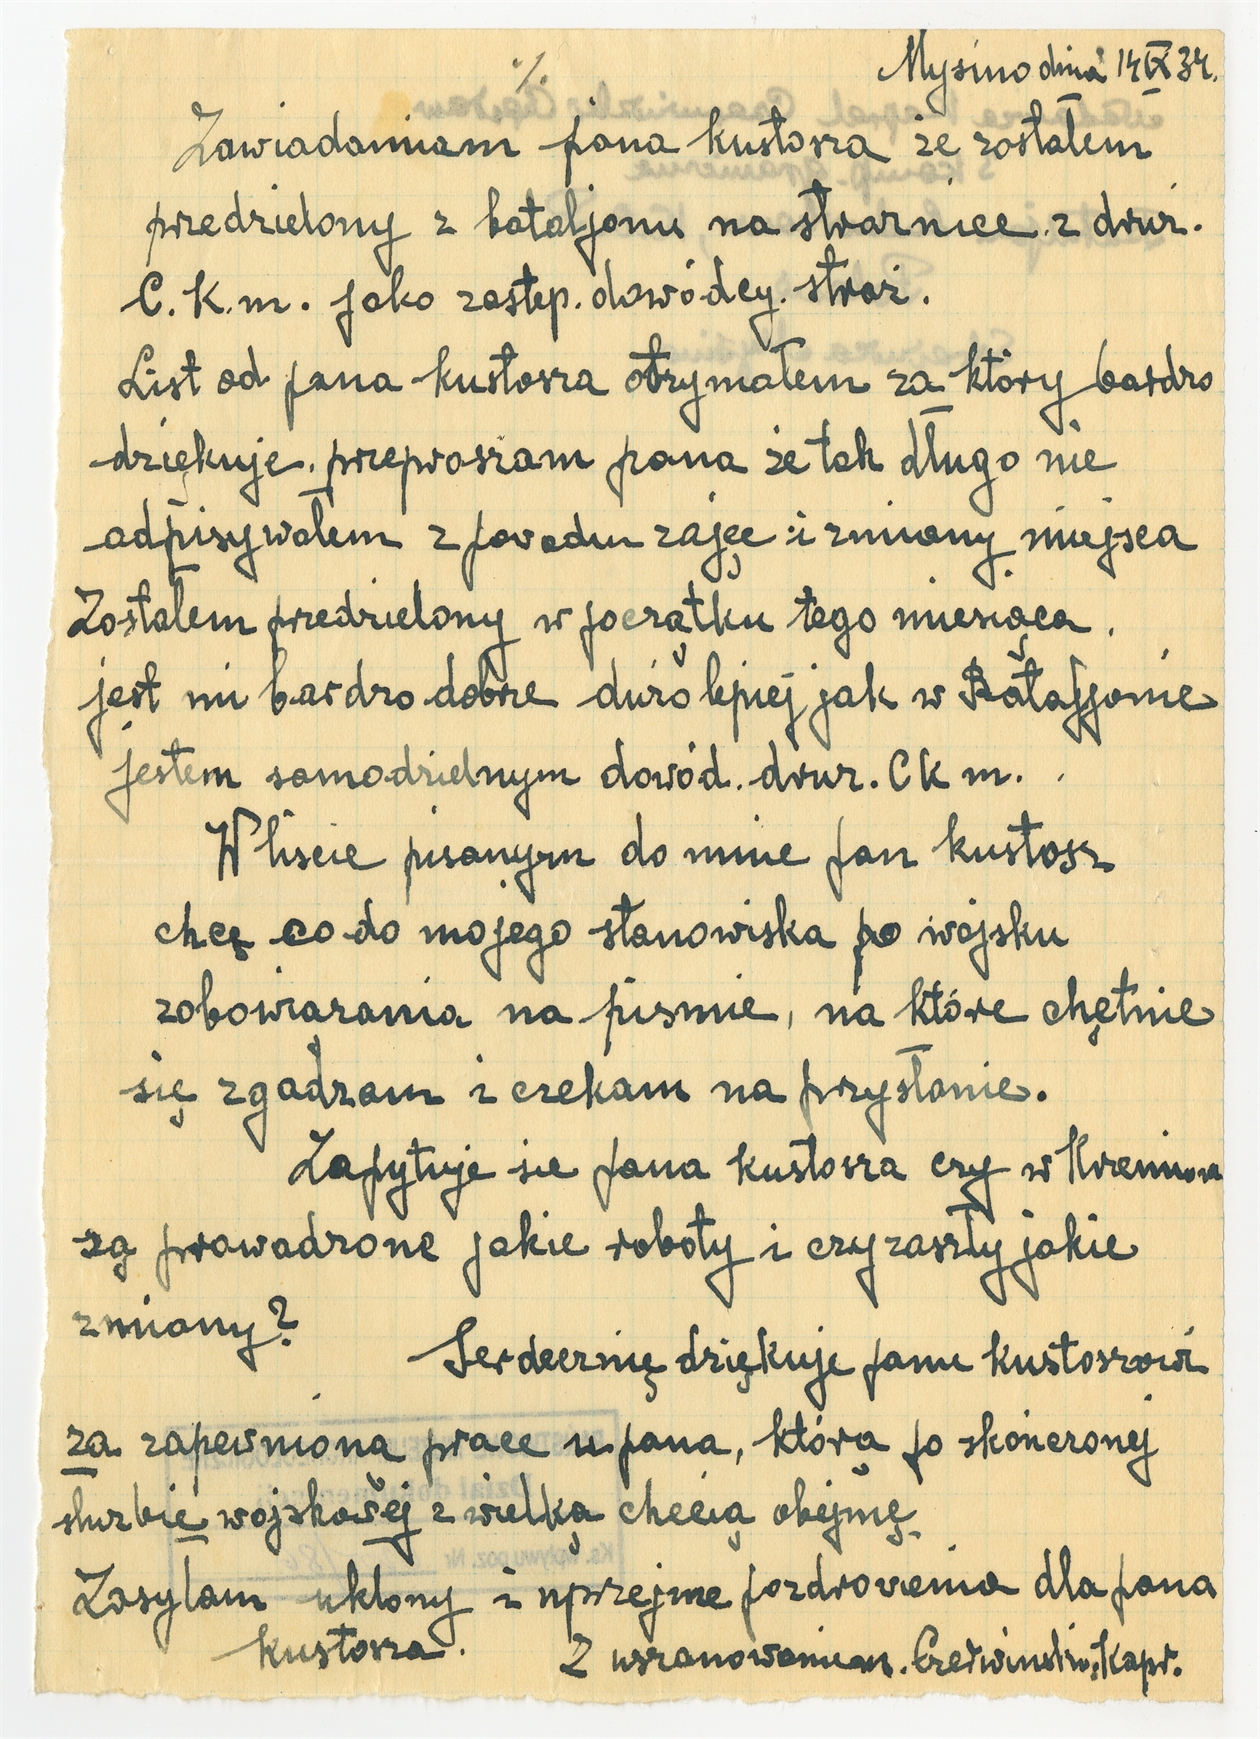 ./.
Mysino dnia 14 IX 34.
Zawiadamiam pana kustosza że zostałem
przedzielony z bataljonu na strarnice z druż.
C.K.m. jako zastęp. dowódcy. straż.
List od pana kustosza otrzymałem za który bardzo
dziękuje. przeprosram pana że tak długo nie
adpisywałem z povodu zajęc i zmiany miejsca
Zostałem przedzielony w początku tego miesiąca.
jest mi bardzo dobrze dużo lepiej jak w Batalionie
jestem samodzielnym dowód. druż. C k m.
W liscie pisanym do mnie pan kustosz
chcę co do mojego stanowiska po wojsku
zobowiązania na pismie, na które chętnie
się zgadzam i czekam na przysłanie.
Zapytuje sie pana kustosza czy w
są prowadzone jakie roboty i czy zaszły jakie
zmiany?
Serdecznię dziękuje panu kustoszowi
za zapewniona prace u pana, którą po skończonej
służbie wojskowej z wielką checią obejmę.
Zasyłam uklony i uprzejme pozdrowienia dla pana
kustosza. Z uszanowaniem. Czerwiński, Kapr.